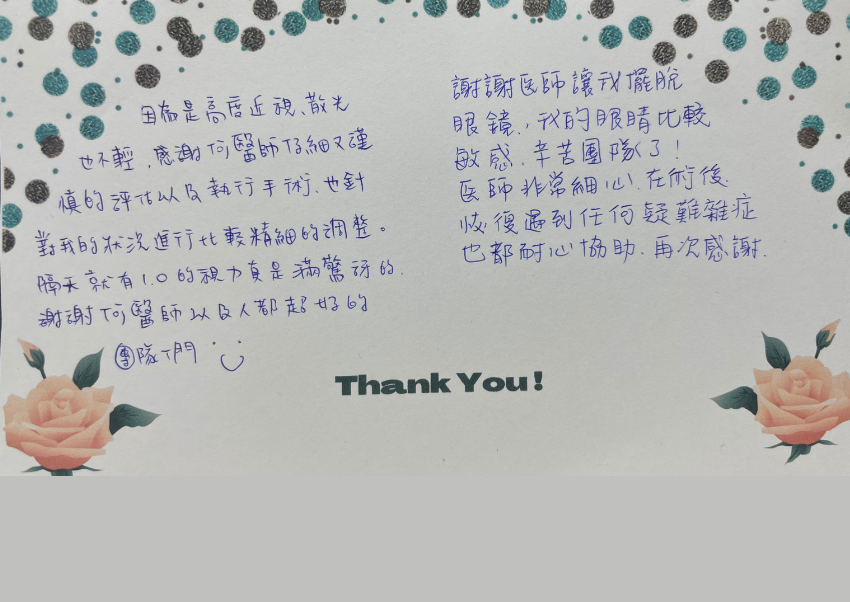 因為是高度近視、散光
也不輕，感謝何醫師仔細又謹
慎的評估以及執行手術，也針
對我的狀況進行比較精細的調整。
隔天就有1.0的視力真是滿驚訝的，
謝謝何醫師以及人都超好的
團隊們
謝謝医師讓我擺脫
眼鏡，我的眼睛比較
敏感，辛苦團隊了！
医師非常細心，在術後
恢復遇到任何疑難雜症
也都耐心協助，再次感謝．
Thank You!